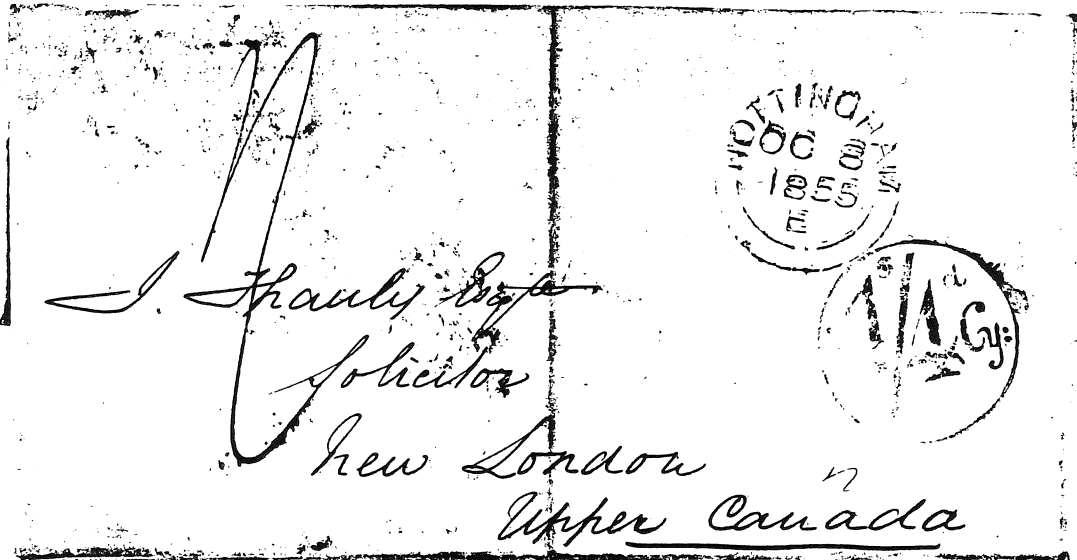 NOTTINGHAM
OC 8
1855
E
1s/1d Cy:
J. Shanly Esqre
Solicitor
New London
Upper Canada